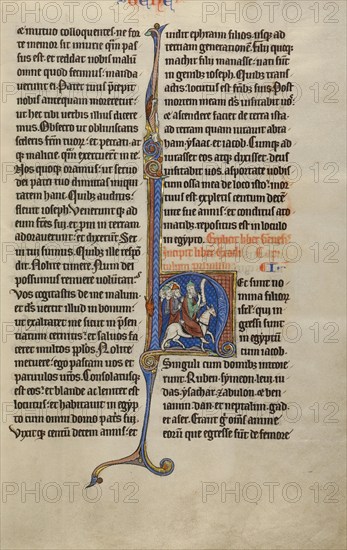 & mutuo colloquentes. ne for
te memor sit iniurie qͣm pas
sus est. et reddat nobis malū
omne quod fecimus. manda
uerunt ei. Pater tuus p̄cepit
nobis antequam moreretur.
ut hec tibi verbis illius dicere
mus. Obsecro ut obliuiscaris
sceleris frm̄ tuoꝝ. et peccati at
qꝫ malicie qͣm exercuerunt in te.
Nos quoqꝫ oramus. ut seruis
dei patri tuo dimittas iniqui
tatem hanc. Quibꝫ auditis.
fleuit ioseph. Venerunt qꝫ ad
eum frēs sui. et proni in terram
adorauerunt. et dixerunt. Ser
ui tui sumus. Quibꝫ ille respō
dit. Nolite timere. Num dei
possumus renuere volūtatē.
Vos cogitastis de me malum.
et deus uertit illud in bonum.
ut exaltaret me sicut in p̄sen
tiarum cernitis. et saluos fa
ceret multos populos. Nolite
metuere. ego pascam uos et
paruulos uros. Consolatusqꝫ
est eos. et blande ac leniter est
locutus. et habitauit in egyp
to cum omni domo patris sui.
Vixitqꝫ centum decem annis. et
uidit ephraim filios. usqꝫ ad
terciam generationem. Filii quoqꝫ
machir filii manasse. nati sunt
in genibꝫ ioseph. Quibꝫ trans
actis. locutus est frībꝫ suis. Post
mortem meam ds̄ uisitabit uos.
et ascendere faciet de terra ista
ad terram quam iurauit abra
ham. ysaac et iacob. Cumqꝫ ad
iurasset eos atqꝫ dixisset. deus
uisitabit uos. asportate uobis
cum ossa mea de loco isto. mor
tuus est expletis centum dece
uite sue annis. et conditus aro
matibus. repositus est in loculo
in egypto.
Explicit liber Genesis
Incipit liber Exodi
I.
Hec sunt no
mina filioꝝ
isrl̄. qui in
gressi sunt
in egyptū
cum iacob.
Singuli cum domibꝫ introie
runt. Ruben. symeon. leui. iu
das. ysachar. zabulon. et ben
iamin. dan. et neptalim. gad. et
aser. Erant gͦ om̄s anime
eorū que egresse sūt de femore
PHOTO12